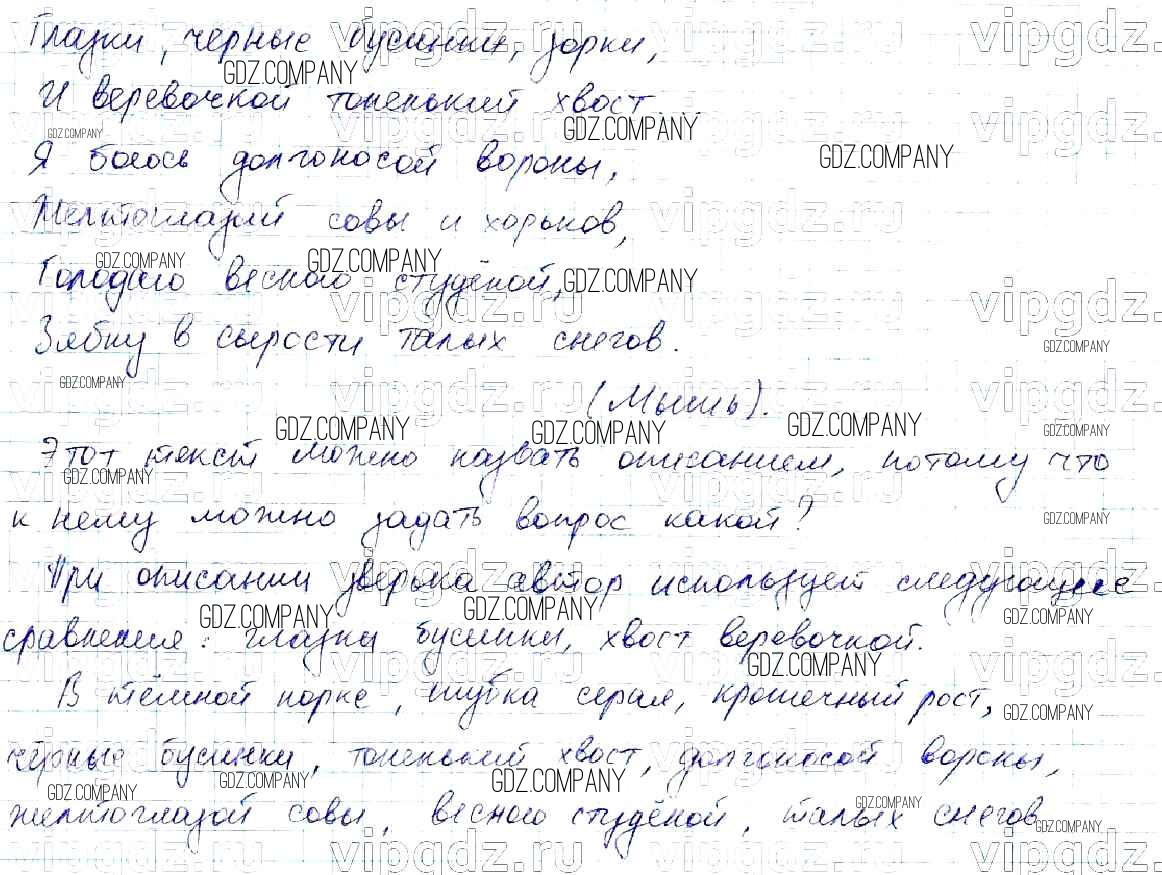 Глазки, черные бусинки, зорки,
И веревочкой тоненький хвост.
Я боюсь долгоносой вороны,
Желтоглазой совы и хорьков,
Голодаю весною студёной,
Зябну в сырости талых снегов.
(Мышь).
Этот текст можно назвать описанием, потому что
к нему можно задать вопрос какой?
При описании зверька автор использует следующие
сравнения: глазки бусинки, хвост веревочкой.
В тёмной норке, шубка серая, крошечный рост,
чёрные бусинки, тоненький хвост, долгоносой вороны,
желтоглазой совы, весною студёной, талых снегов
GDZ.COMPANY
vipgdz.ru